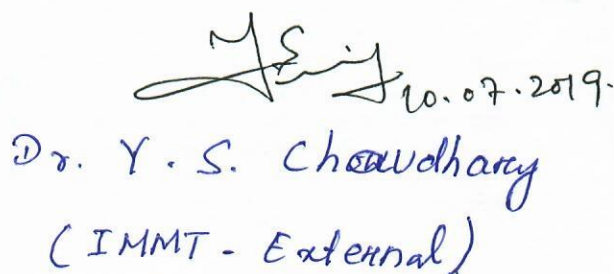 10.07.2019.
Dr. Y. S. Chowdhary
(IMMT - External)